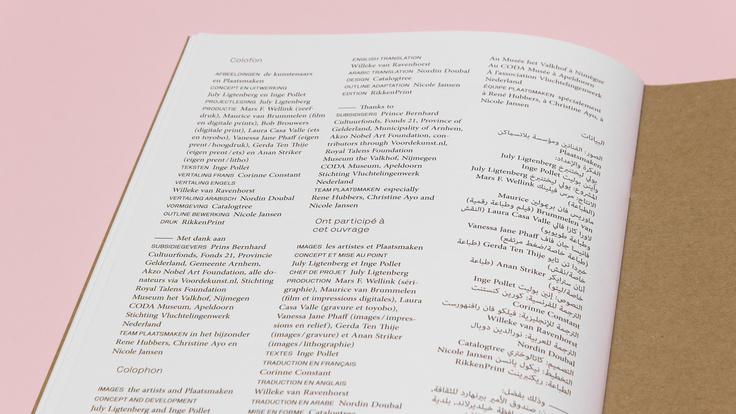 Colofon
AFBEELDINGEN de kunstenaars
en Plaatsmaken
CONCEPT EN UITWERKING
July Ligtenberg en Inge Pollet
PROJECTLEIDING July Ligtenberg
PRODUCTIE Mars F. Wellink (zeef-
druk), Maurice van Brummelen (film
en digitale prints), Rob Brouwers
(digitale print), Laura Casa Valle (ets
en toyobo), Vanessa Jane Phaff (eigen
prent/hoogdruk), Gerda Ten Thije
(eigen prent/ets) en Anan Striker
(eigen prent/litho)
TEKSTEN Inge Pollet
VERTALING FRANS Corinne Constant
VERTALING ENGELS
Willeke van Ravenhorst
VERTALING ARABISCH Nordin Doubal
VORMGEVING Catalogtree
OUTLINE BEWERKING Nicole Jansen
DRUK RikkenPrint
—— Met dank aan
SUBSIDIEGEVERS Prins Bernhard
Cultuurfonds, Fonds 21, Provincie
Gelderland, Gemeente Arnhem,
Akzo Nobel Art Foundation, alle do-
nateurs via Voordekunst.nl, Stichting
Royal Talens Foundation
Museum het Valkhof, Nijmegen
CODA Museum, Apeldoorn
Stichting Vluchtelingenwerk
Nederland
TEAM PLAATSMAKEN in het bijzonder
Rene Hubbers, Christine Ayo en
Nicole Jansen
Colophon
IMAGES the artists and Plaatsmaken
CONCEPT AND DEVELOPMENT
July Ligtenberg and Inge Pollet
ENGLISH TRANSLATION
Willeke van Ravenhorst
ARABIC TRANSLATION Nordin Doubal
DESIGN Catalogtree
OUTLINE ADAPTATION Nicole Jansen
EDITION RikkenPrint
—— Thanks to
SUBSIDIZERS Prince Bernhard
Cultuurfonds, Fonds 21, Province of
Gelderland, Municipality of Arnhem,
Akzo Nobel Art Foundation, con-
tributors through Voordekunst.nl,
Royal Talens Foundation
Museum the Valkhof, Nijmegen
CODA Museum, Apeldoorn
Stichting Vluchtelingenwerk
Nederland
TEAM PLAATSMAKEN especially
Rene Hubbers, Christine Ayo and
Nicole Jansen
Ont participé à
cet ouvrage
IMAGES les artistes et Plaatsmaken
CONCEPT ET MISE AU POINT
July Ligtenberg et Inge Pollet
CHEF DE PROJET July Ligtenberg
PRODUCTION Mars F. Wellink (séri-
graphie), Maurice van Brummelen
(film et impressions digitales), Laura
Casa Valle (gravure et toyobo),
Vanessa Jane Phaff (images/impres-
sions en relief), Gerda Ten Thije
(images/gravure) et Anan Striker
(images/lithographie)
TEXTES Inge Pollet
TRADUCTION EN FRANÇAIS
Corinne Constant
TRADUCTION EN ANGLAIS
Willeke van Ravenhorst
TRADUCTION EN ARABE Nordin Doubal
MISE EN FORME Catalogtree
Au Musée het Valkhof à Nimègue
Au CODA Musée à Apeldoorn
À l'association Vluchtelingenwerk
Nederland
ÉQUIPE PLAATSMAKEN spécialement
à René Hubbers, à Christine Ayo, à
Nicole Jansen
البيانات
الصور: الفنانين ومؤسسة بلاتسماكن
Plaatsmaken
الفكرة والإعداد:
يولي ليختنبرخ July Ligtenberg
وإينن بوليت Inge Pollet
المشروع: يولي ليختنبرخ July Ligtenberg
الإنتاج: مرس فيلينك Mars F. Wellink
(الطباعة)
ماوريس فان برومولين Maurice
Brummelen van (فيلم وطباعة رقمية)
لاورا كازا فالي Laura Casa Valle (النقش
وطباعة طويوبو)
فانيسا جان فاف Vanessa Jane Phaff
(طباعة خاصة/ضغط مرتفع)
خيردا تن تايو Gerda Ten Thije (طباعة
خاصة/نقش)
أنان سترايكر Anan Striker (طباعة
خاصة/ليتو)
النصوص: إنن بوليت Inge Pollet
الترجمة الفرنسية: كورين كنستنت
Corinne Constant
الترجمة للإنجليزية: فيلكو فان رافنهورست
Willeke van Ravenhorst
الترجمة للعربية: نورالدين دوبال
Nordin Doubal
التصميم: كاتالوختري Catalogtree
التخطيط: نيكول يانسن Nicole Jansen
الطباعة: ريكبرينت RikkenPrint
—— وذلك بفضل:
صندوق الأمير بيرنهارد للثقافة،